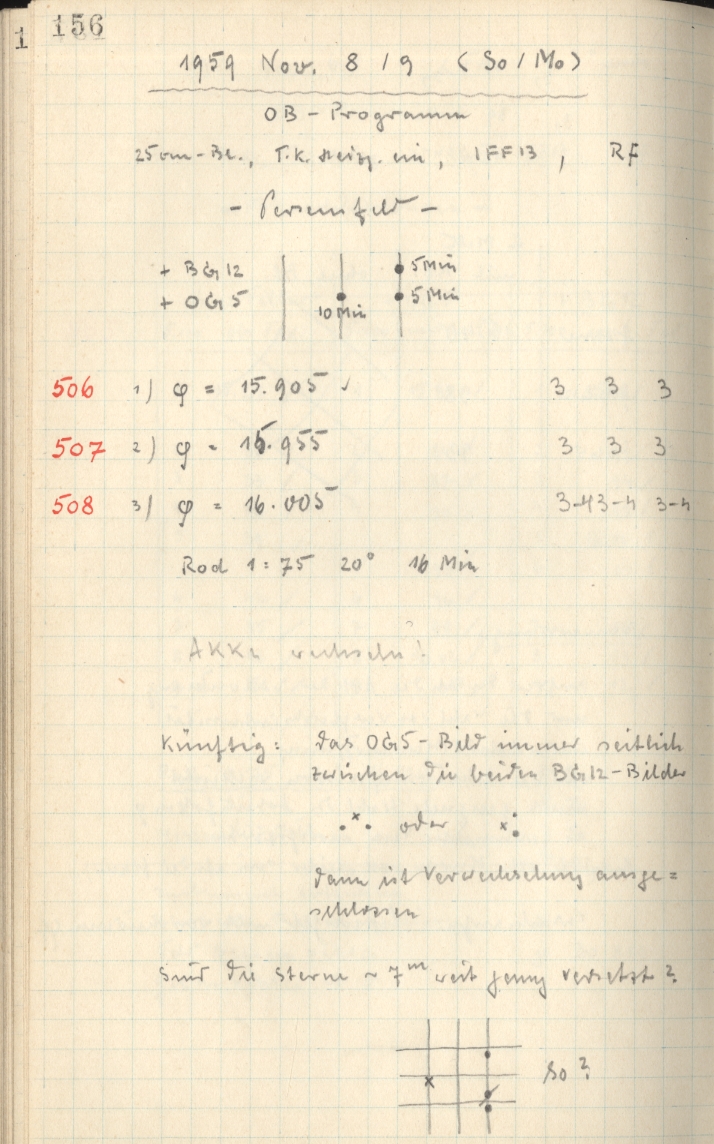 1
156
1959 Nov. 8/9 (So/Mo)
OB-Programm
25cm-Bl., T.K. Heizg. ein, IFF13, RF
- Perseusfeld -
+ BG12
+ OG5
10 Min
5 Min
5 Min
506 1) φ = 15.905 ✓ 3 3 3
507 2) φ = 15.955 3 3 3
508 3) φ = 16.005 3-4 3-4 3-4
Rod 1:75 20° 16 Min
wechseln!
Künftig: das OG5-Bild immer seitlich
zwischen die beiden BG12-Bilder
oder
dann ist Verwechselung ausge=
schlossen
Sind die Sterne ~ 7ᵐ weit genug versetzt?
So?